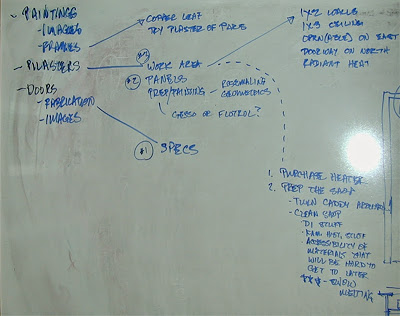 - PAINTINGS
- IMAGES
- FRAMES
- PILASTERS
- DOORS
- FABRICATION
- IMAGES
COPPER LEAF
TRY PLASTER OF PARIS
WORK AREA
#2 PANELS
PREP/PAINTING
ROSEMALING
GEOMETRICS
GESSO OR FLOTROL?
#1 SPECS
1x2 WALLS
1x3 CEILING
OPEN(ABLE) ON EAST
DOORWAY ON NORTH
RADIANT HEAT
1. PURCHASE HEATER
2. PREP THE SHOP
- TURN CADDY AROUND
- CLEAN SHOP
DI STUFF
- FAM HIST. STUFF
- ACCESSIBILITY OF
MATERIALS THAT
WILL BE HARD TO
GET TO LATER